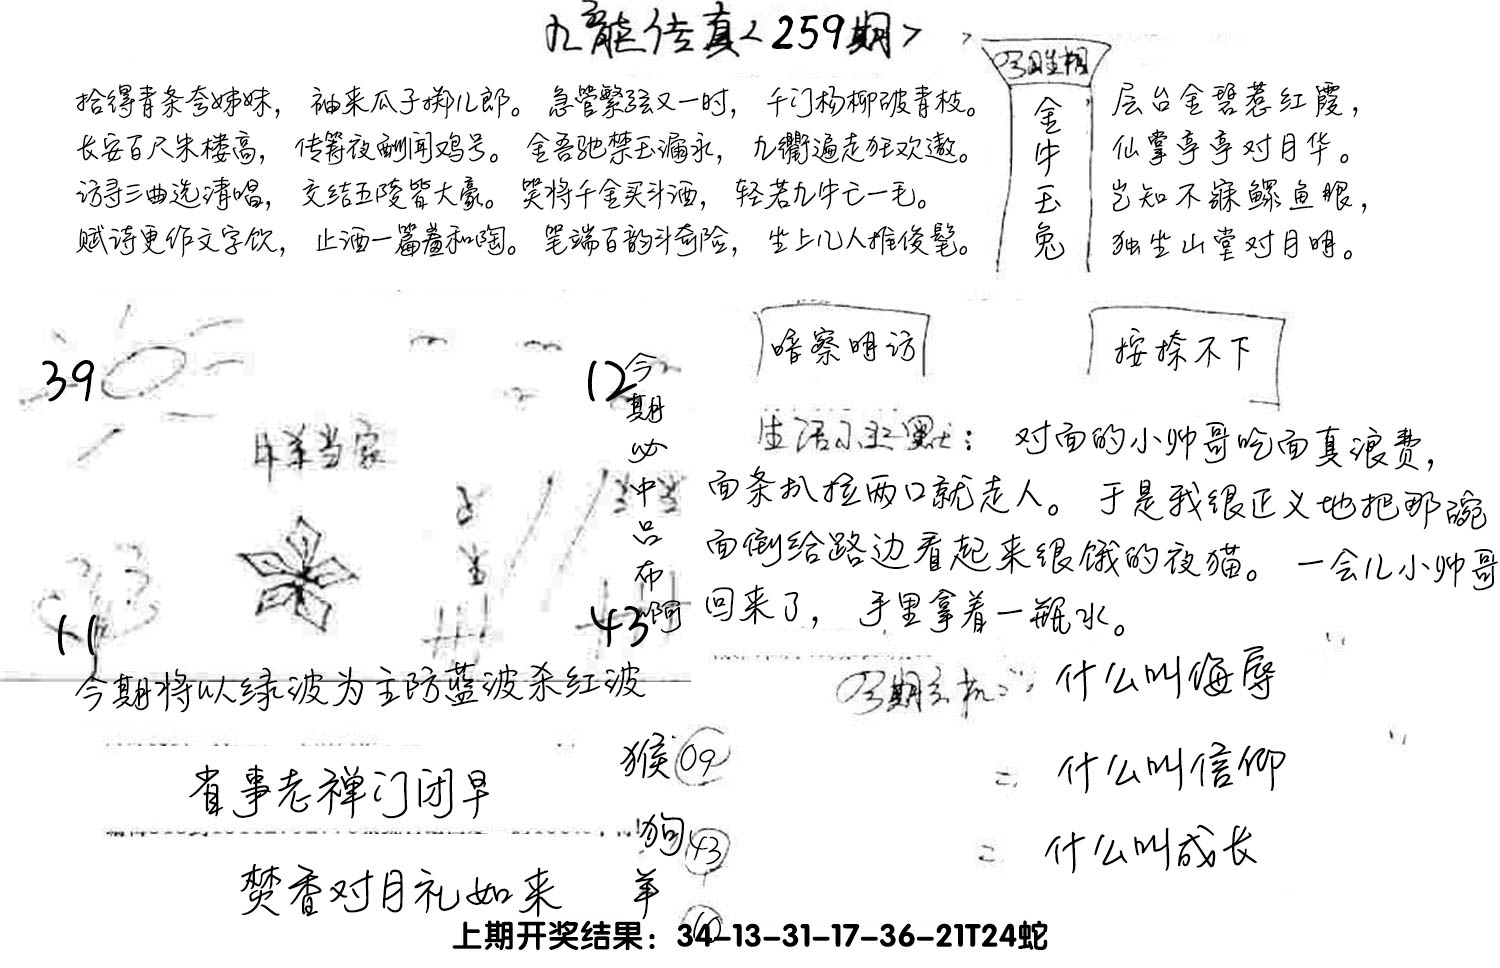 九龍传真<259期>
拾得青条夸姊妹，袖来瓜子掷儿郎。急管繁弦又一时，千门杨柳破青枝。
长安百尺朱楼高，传筹夜酬闻鸡号。金吾驰禁玉漏永，九衢遍走狂欢遨。
访寻三曲选清唱，交结五陵皆大豪。笑将千金买斗酒，轻若九牛亡一毛。
赋诗更作文字饮，止酒一篇羞和陶。笔端百韵斗奇险，坐上几人推俊髦。
今期生相
金牛玉兔
层台金碧惹红霞，
仙掌亭亭对月华。
岂知不寐鳏鱼眼，
独坐山堂对月明。
39
12
牛羊当家
今期必中吕布啊
11
43
今期将以绿波为主防蓝波杀红波
暗察明访
按捺不下
生活小幽默：对面的小帅哥吃面真浪费，
面条扒拉两口就走人。于是我很正义地把那碗
面倒给路边看起来很饿的夜猫。一会儿小帅哥
回来了，手里拿着一瓶水。
今期玄机：什么叫侮辱
=什么叫信仰
=什么叫成长
省事老禅门闭早
焚香对月礼如来
猴09
狗43
羊
上期开奖结果：34-13-31-17-36-21T24蛇